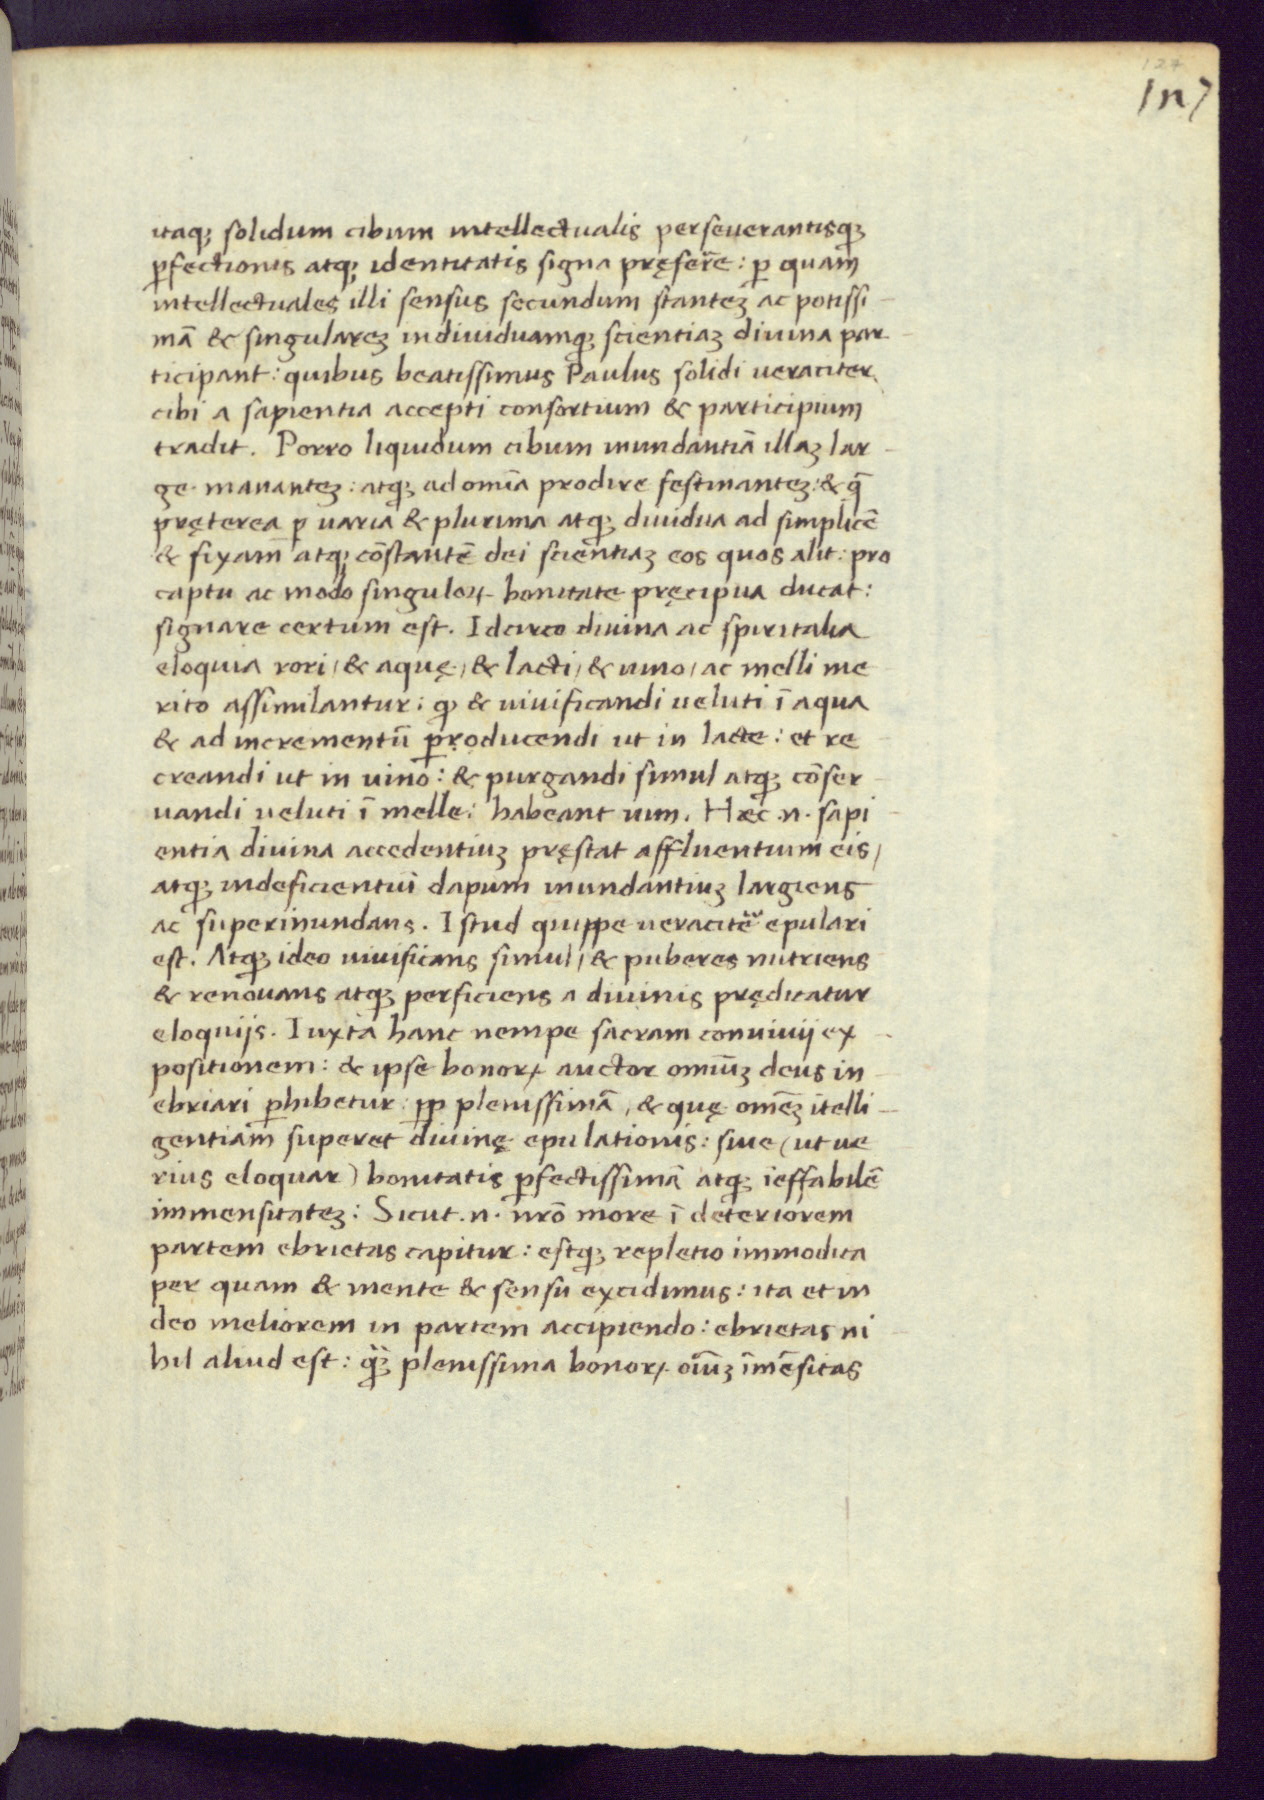 127
1n7
itaq; solidum cibum intellectualis perseuerantisq;
p̱fectionis atq; identitatis signa pręfer̄e: p̱ quam
intellectuales illi sensus secundum stanteʒ ac potissi-
mā & singulareʒ indiuiduamq; scientiaʒ diuina par-
ticipant: quibus beatissimus Paulus solidi ueraciter
cibi a sapientia accepti consortium & participium
tradit. Porro liquidum cibum inundantiā illaʒ lar-
ge mananteʒ: atq; ad omīa prodire festinanteʒ: & q̄
pręterea p̱ uaria & plurima atq; diuidua ad simplicē
& fixam atq; cōstantē dei scientiaʒ eos quos alit: pro
captu ac modo singuloꝝ bonitate pręcipua ducat:
signare certum est. Idcirco diuina ac spiritalia
eloquia rori / & aquę / & lacti / & uino / ac melli me
rito assimilantur: q; & uiuificandi ueluti ī aqua
& ad incrementū p̱roducendi ut in lacte: et re-
creandi ut in uino: & purgandi simul atq; cōser-
uandi ueluti ī melle: habeant uim. Hæc .n. sapi-
entia diuina accedentiuʒ pręstat affluentium eis /
atq; indeficientuī dapum inundantiuʒ largiens
ac superinundans. Istud quippe ueracitēr epulari
est. Atq; ideo uiuificans simul / & puberes nutriens
& renouans atq; perficiens a diuinis prędicatur
eloquijs. Iuxta hanc nempe sacram conuiuij ex-
positionem: & ipse bonoꝝ auctor omiūʒ deus in-
ebriari p̱hibetur: p̱p̱ plenissimā, & quę omēʒ ītelli-
gentiam superet diuinę epulationis: siue (ut ue
rius eloquar) bonitatis p̱fectissimā atq; īeffabilē
immensitateʒ: Sicut .n. nr̄o more ī deteriorem
partem ebrietas capitur: estq; repletio immodica
per quam & mente & sensu excidimus: ita et in
deo meliorem in partem accipiendo: ebrietas ni-
hil aliud est: q̄ʒ plenissima bonoꝝ oiūʒ īmēsitas